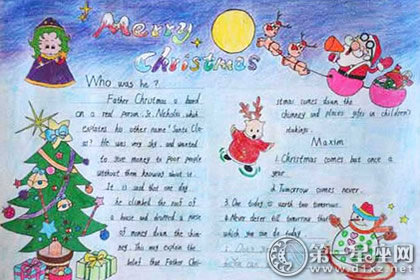 Merry
Christmas
Who was he?
Father Christmas a based
on a real person, St. Nicholas which
explains his other name "Santa Clo-
s? He was very shy and wanted
to give money to poor people
without them knowing about it.
It is said that one day,
he climbed the roof of
a house and dropped a purse
of money down the chim-
ney. This may explain the
belief that Father Chri-
istmas comes down the
chimney and places gifts in children's
stockings.
Maxim
1. Christmas comes but once a
year.
2. Tomorrow comes never.
3. One today is worth two tomorrows.
4. Never defer till tomorrow that
which you can do today.
第一星座网
www.d1xz.net